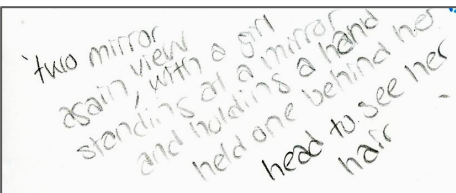 'two mirror
again view
, with a girl
standing at a mirror
and holding a hand
held one behind her
head to see her
hair